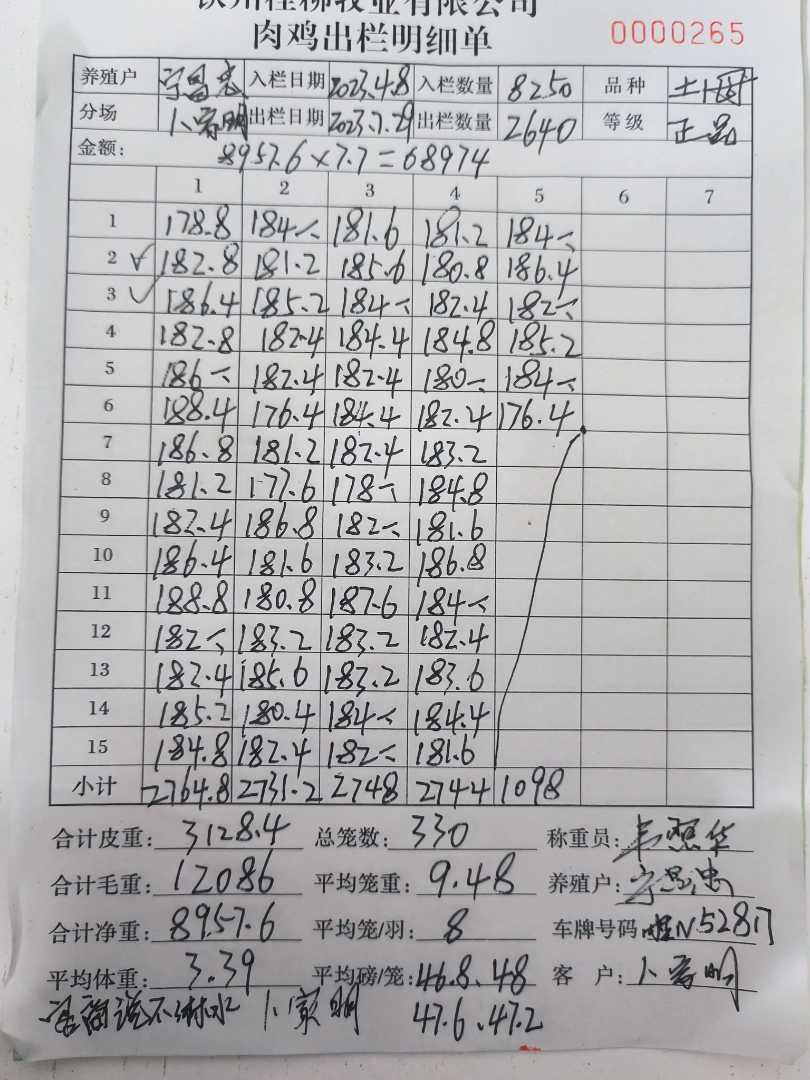 钦州桂柳牧业有限公司
肉鸡出栏明细单 0000265
养殖户 入栏日期 2023.4.8 入栏数量 8250 品种 土
分场 出栏日期 2023.7.29 出栏数量 2640 等级 正品
金额: 8957.6×7.7=68974
1 2 3 4 5 6 7
1 178.8 184 181.6 181.2 184
2 182.8 181.2 185.6 180.8 186.4
3 186.4 185.2 184 182.4 182
4 182.8 182.4 184.4 184.8 185.2
5 186 182.4 182.4 180 184
6 188.4 176.4 184.4 182.4 176.4
7 186.8 181.2 182.4 183.2
8 181.2 177.6 178 184.8
9 182.4 186.8 182 181.6
10 186.4 181.6 183.2 186.8
11 188.8 180.8 187.6 184
12 182 183.2 183.2 182.4
13 182.4 185.6 183.2 183.6
14 185.2 180.4 184 184.4
15 184.8 182.4 182 181.6
小计 2764.8 2731.2 2748 2744 1098
合计皮重: 3128.4 总笼数: 330 称重员: 华
合计毛重: 12086 平均笼重: 9.48 养殖户:
合计净重: 8957.6 平均笼/羽: 8 车牌号码 N5281
平均体重: 3.39 平均磅/笼: 46.8.48 客 户: 明
说不淋水 明 47.6.47.2